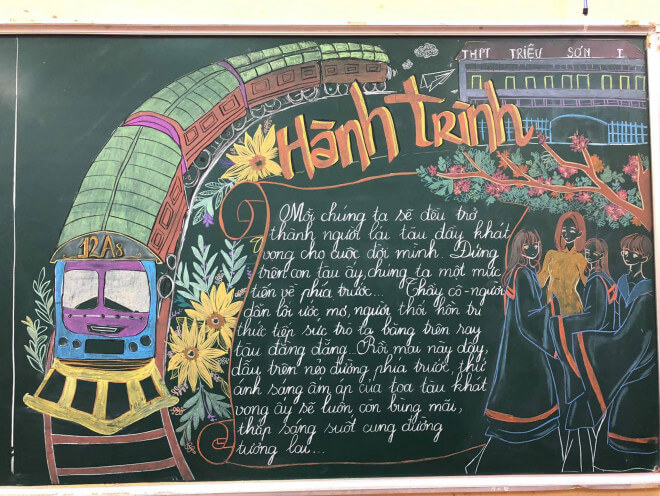 THPT TRIỆU SƠN I
Hành trình
12A8
Mỗi chúng ta sẽ đều trở
thành người lái tàu đầy khát
vọng cho cuộc đời mình. Đứng
trên con tàu ấy, chúng ta một mực
tiến về phía trước... Thầy cô - người
dẫn lối ước mơ, người thổi hồn tri
thức tiếp sức trò ta băng trên ray
tàu đằng đẵng... Rồi mai này đây,
dẫu trên nẻo đường phía trước, thứ
ánh sáng ấm áp của toa tàu khát
vọng ấy sẽ luôn còn bùng mãi,
thắp sáng suốt cung đường
tương lai...